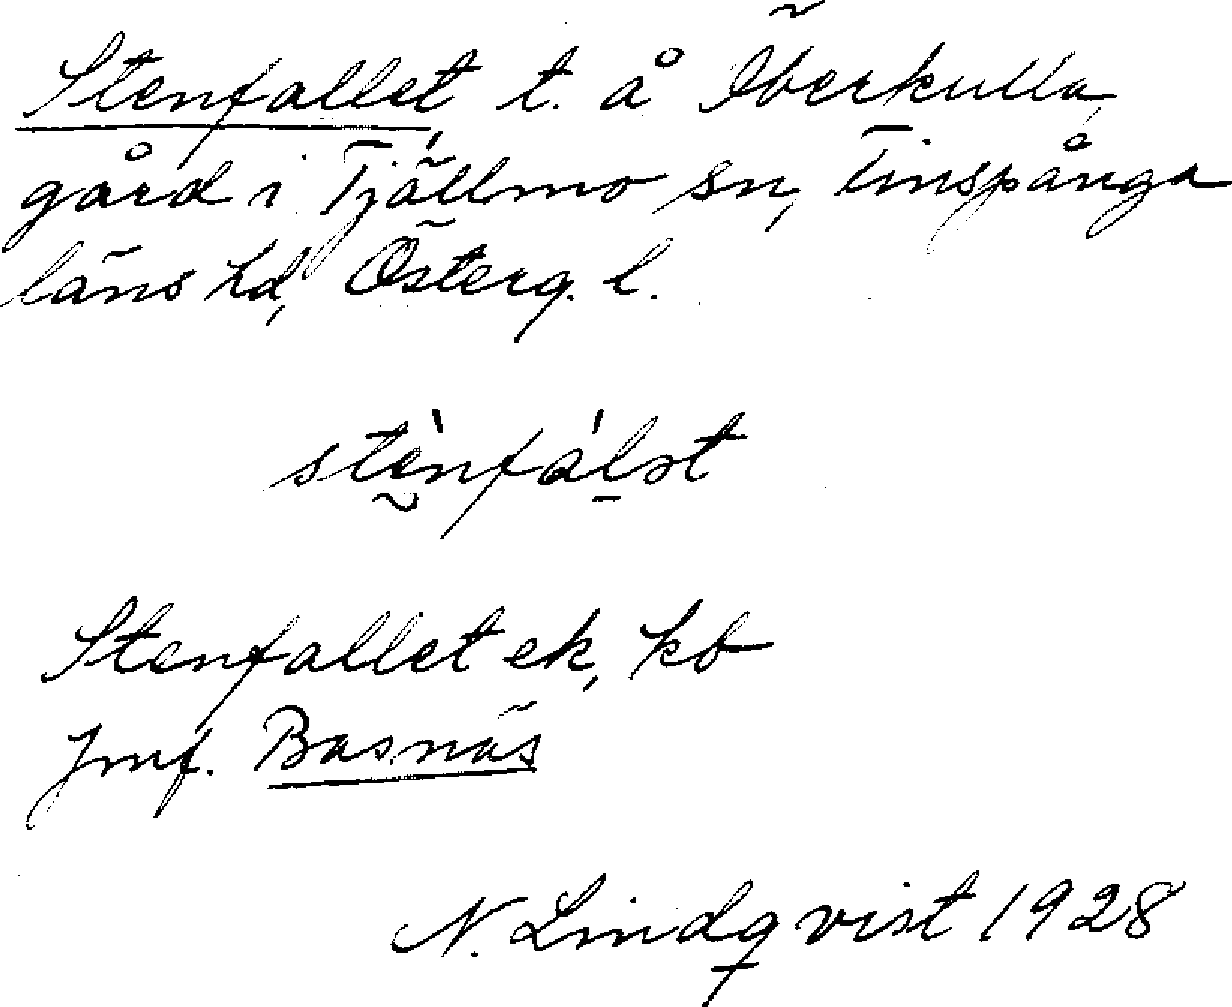 Stenfallet t. å Överkulla
gård i Tjällmo sn, Finspånga
läns hd, Österg. l.
Stenfallet ek, kb
Jmf. Basnäs
N. Lindqvist 1928